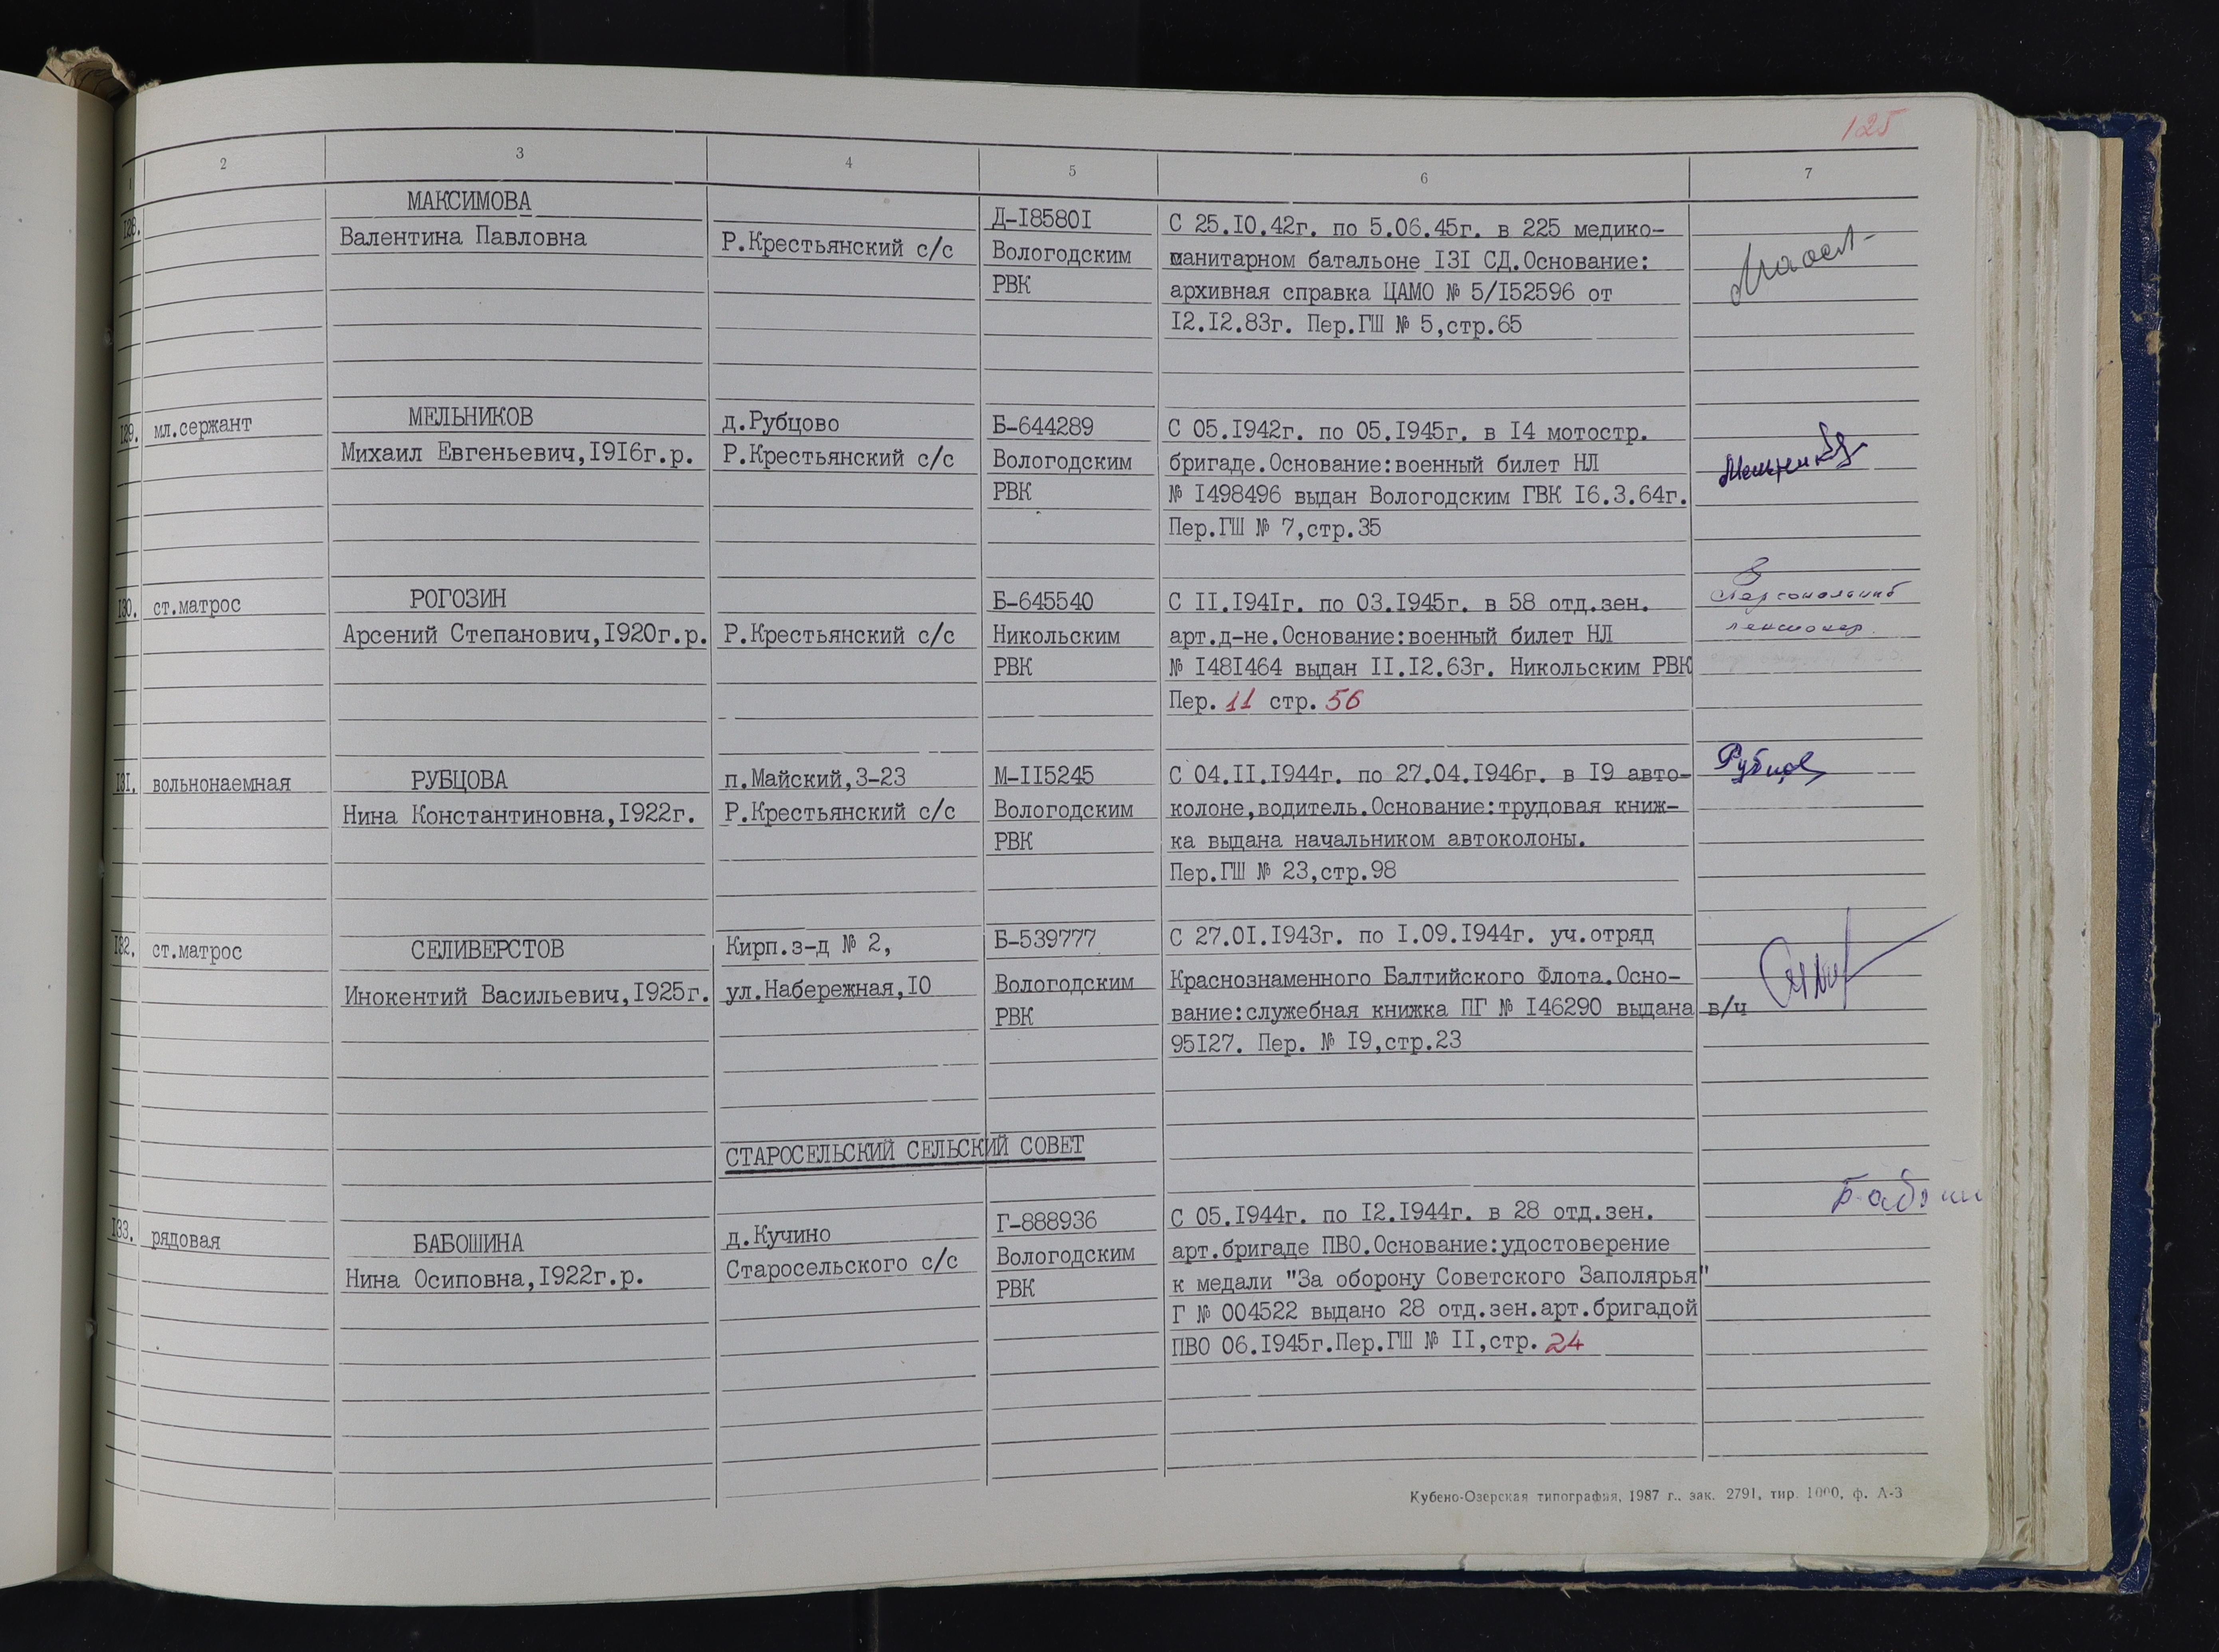 125
1 2 3 4 5 6 7
128. МАКСИМОВА
Валентина Павловна
Р.Крестьянский с/с
Д-I8580I
Вологодским
РВК
С 25.I0.42г. по 5.06.45г. в 225 медико-
санитарном батальоне I3I СД.Основание:
архивная справка ЦАМО № 5/I52596 от
I2.I2.83г. Пер.ГШ № 5,стр.65
I29. мл.сержант
МЕЛЬНИКОВ
Михаил Евгеньевич,I9I6г.р.
д.Рубцово
Р.Крестьянский с/с
Б-644289
Вологодским
РВК
С 05.I942г. по 05.I945г. в I4 мотостр.
бригаде.Основание:военный билет НЛ
№ I498496 выдан Вологодским ГВК I6.3.64г.
Пер.ГШ № 7,стр.35
I30. ст.матрос
РОГОЗИН
Арсений Степанович,I920г.р.
Р.Крестьянский с/с
Б-645540
Никольским
РВК
С II.I94Iг. по 03.I945г. в 58 отд.зен.
арт.д-не.Основание:военный билет НЛ
№ I48I464 выдан II.I2.63г. Никольским РВК
Пер. 11 стр. 56
Персональный
пенсионер.
I3I. вольнонаемная
РУБЦОВА
Нина Константиновна,I922г.
п.Майский,3-23
Р.Крестьянский с/с
М-II5245
Вологодским
РВК
С 04.II.I944г. по 27.04.I946г. в I9 авто-
колоне,водитель.Основание:трудовая книж-
ка выдана начальником автоколоны.
Пер.ГШ № 23,стр.98
Рубцов
I32. ст.матрос
СЕЛИВЕРСТОВ
Инокентий Васильевич,I925г.
Кирп.з-д № 2,
ул.Набережная,I0
Б-539777
Вологодским
РВК
С 27.0I.I943г. по I.09.I944г. уч.отряд
Краснознаменного Балтийского Флота.Осно-
вание:служебная книжка ПГ № I46290 выдана в/ч
95I27. Пер. № I9,стр.23
СТАРОСЕЛЬСКИЙ СЕЛЬСКИЙ СОВЕТ
I33. рядовая
БАБОШИНА
Нина Осиповна,I922г.р.
д.Кучино
Старосельского с/с
Г-888936
Вологодским
РВК
С 05.I944г. по I2.I944г. в 28 отд.зен.
арт.бригаде ПВО.Основание:удостоверение
к медали "За оборону Советского Заполярья"
Г № 004522 выдано 28 отд.зен.арт.бригадой
ПВО 06.I945г.Пер.ГШ № II,стр. 24
Кубено-Озерская типография, 1987 г., зак. 2791, тир. 1000, ф. А-3